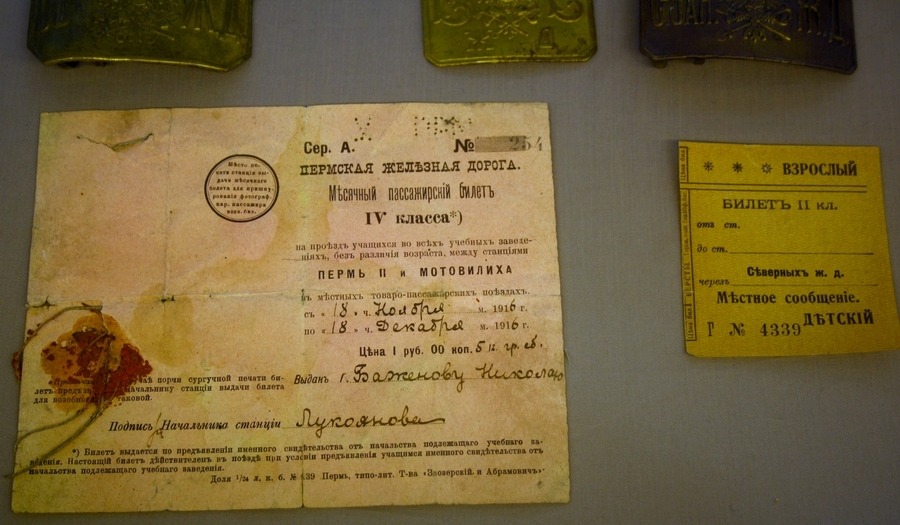 Сер. А. № 254
ПЕРМСКАЯ ЖЕЛѢЗНАЯ ДОРОГА.
Мѣсячный пассажирскій билетъ
IV класса*)
на проѣздъ учащихся во всѣхъ учебныхъ заведе-
ніяхъ, безъ различія возраста, между станціями
ПЕРМЬ II и МОТОВИЛИХА
въ мѣстныхъ товаро-пассажирскихъ поѣздахъ.
съ „18 ч. Ноября м. 1916 г.
по „18 ч. Декабря м. 1916 г.
Цѣна 1 руб. 00 коп.
Выданъ г. Баженову Николаю
порчи сургучной печати би-
начальнику станціи выдачи билета
для таковой.
Подпись Начальника станціи Лукоянова
*) Билетъ выдается по предъявленіи именного свидѣтельства отъ начальства подлежащаго учебнаго за-
веденія. Настоящій билетъ дѣйствителенъ въ поѣздѣ при условіи предъявленія учащимся именного свидѣтельства отъ
начальства подлежащаго учебнаго заведенія.
Доля 1/24 л. к. б. № 439 Пермь, типо-лит. Т-ва
Мѣсто пе-
чати станціи вы-
дачи мѣсячнаго
билета для
фотограф.
кар. пассажира
ВЗРОСЛЫЙ
БИЛЕТЪ II кл.
отъ ст.
до ст.
черезъ Сѣверныхъ ж. д.
Мѣстное сообщеніе.
Г № 4339 ДѢТСКІЙ